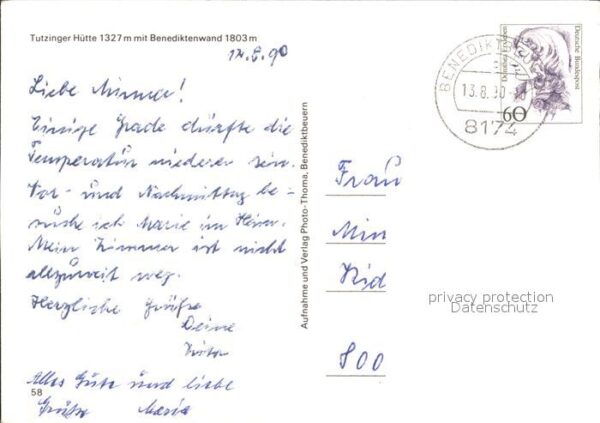 Tutzinger Hütte 1327 m mit Benediktenwand 1803 m
12.8.90
Liebe Mimmer!
Einige Grade dürfte die
Temperatur niederer sein.
Vor- und Nachmittag be-
suche ich Marie im Heim.
Mein Zimmer ist nicht
allzuweit weg.
Herzliche Grüße
Deine
Alles Gute und liebe
Grüße Marie
58
Aufnahme und Verlag Photo-Thoma, Benediktbeuern
13.8.90
8174
60
Deutsche Bundespost
Frau
Min
Kid
800
privacy protection
Datenschutz